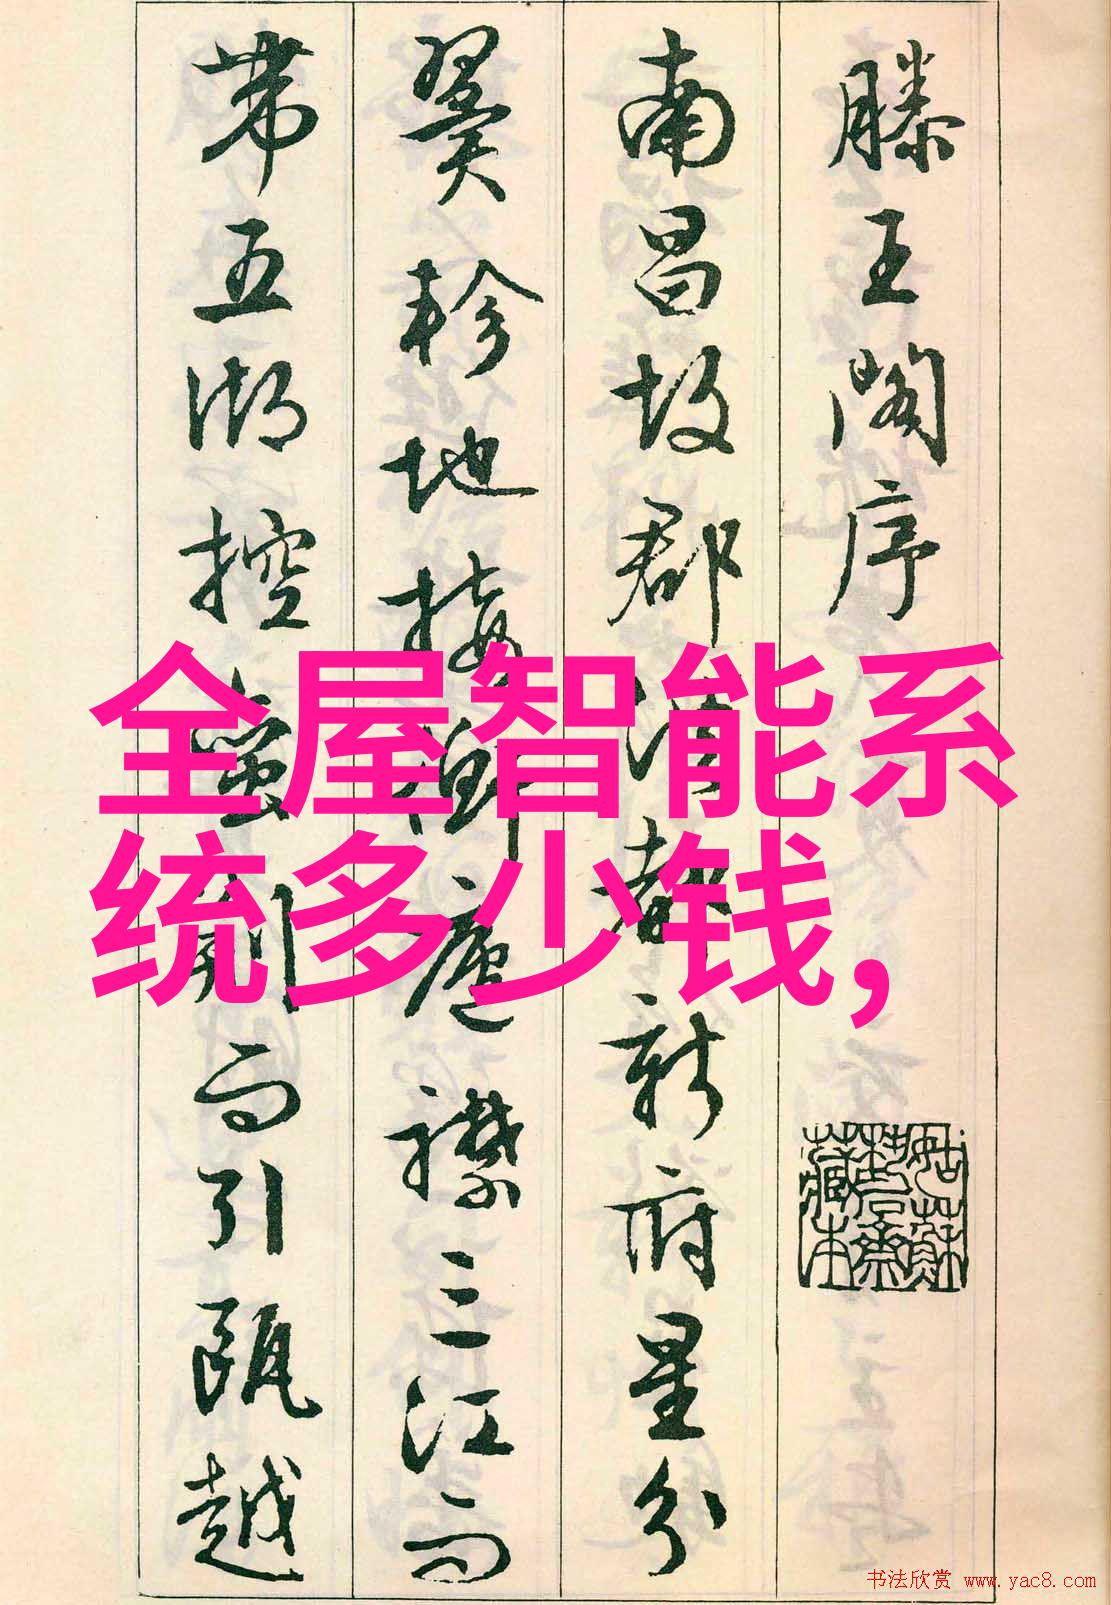 滕王阁序
南昌故郡洪都新府星分
翼轸地接衡庐襟三江而
带五湖控蛮荆而引瓯越
全屋智能系
统多少钱,
姑苏
桃花斋
藏本
书法欣赏 www.yac8.com